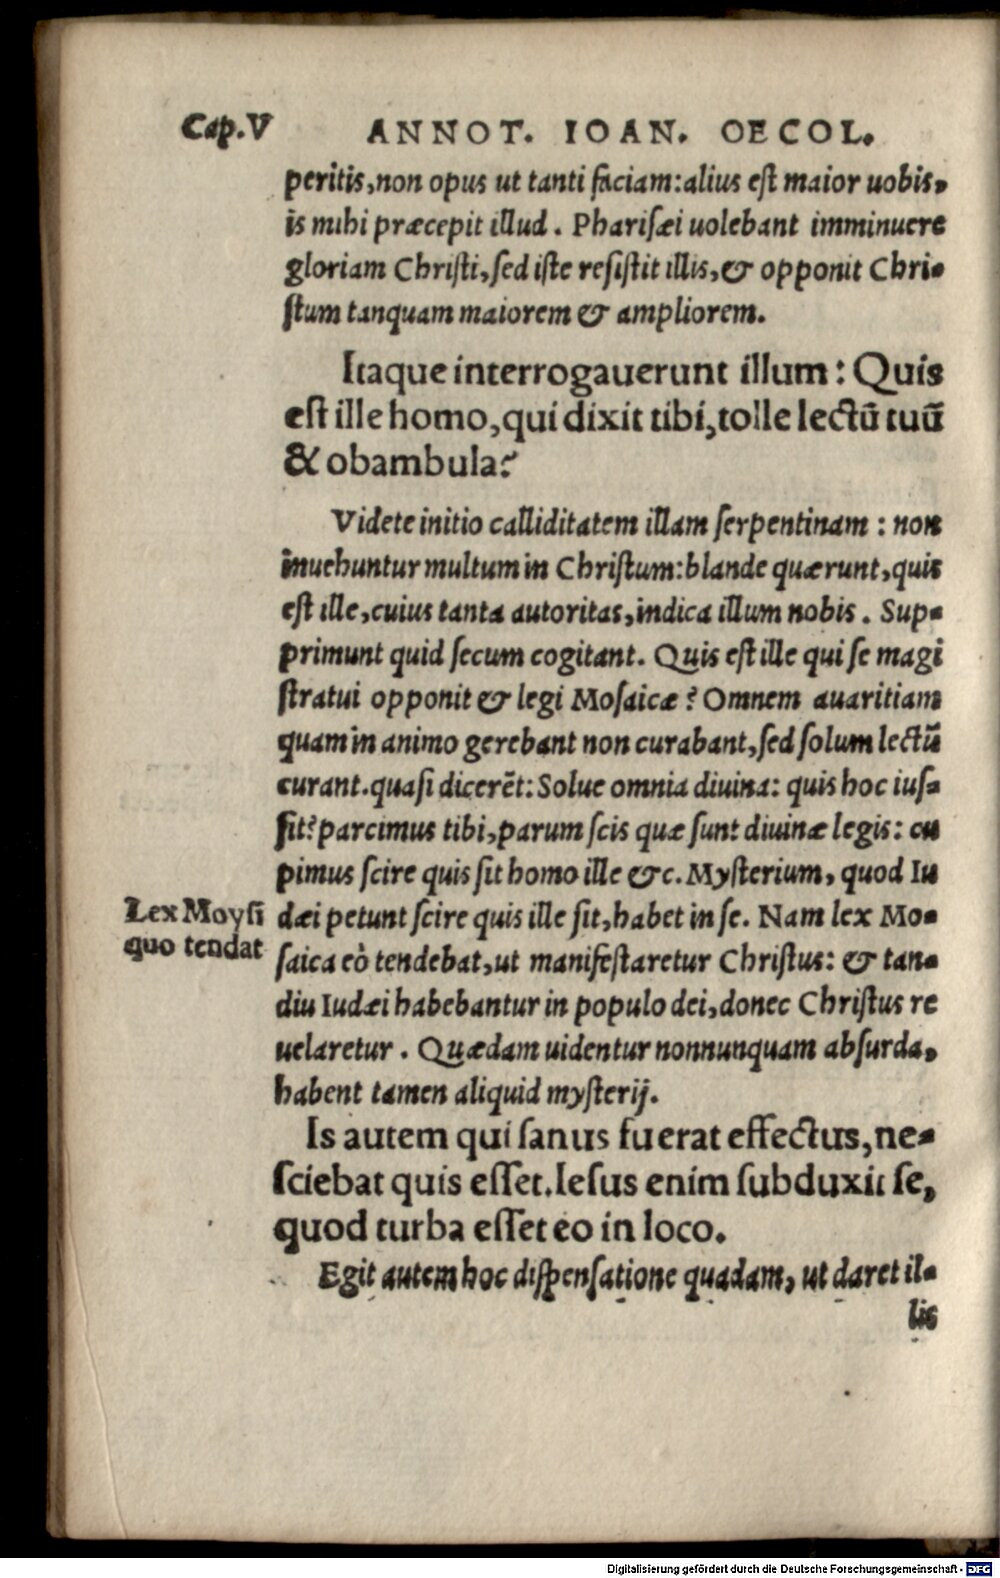 Cap.V ANNOT. IOAN. OECOL.
peritis,non opus ut tanti faciam:alius est maior uobis,
is mihi præcepit illud. Pharisæi uolebant imminuere
gloriam Christi,sed iste resistit illis,& opponit Chri-
stum tanquam maiorem & ampliorem.
Itaque interrogauerunt illum: Quis
est ille homo,qui dixit tibi,tolle lectū tuū
& obambula?
Videte initio calliditatem illam serpentinam: non
inuehuntur multum in Christum:blande quærunt,quis
est ille,cuius tanta autoritas,indica illum nobis. Sup-
primunt quid secum cogitant. Quis est ille qui se magi
stratui opponit & legi Mosaicæ? Omnem auaritiam
quam in animo gerebant non curabant,sed solum lectū
curant.quasi dicerēt: Solue omnia diuina: quis hoc ius-
sit? parcimus tibi,parum scis quæ sunt diuinæ legis: cu
pimus scire quis sit homo ille &c. Mysterium, quod Iu
Lex Moysi
quo tendat
dæi petunt scire quis ille sit,habet in se. Nam lex Mo-
saica eò tendebat,ut manifestaretur Christus: & tan-
diu Iudæi habebantur in populo dei,donec Christus re
uelaretur. Quædam uidentur nonnunquam absurda,
habent tamen aliquid mysterij.
Is autem qui sanus fuerat effectus,ne-
sciebat quis esset.Iesus enim subduxit se,
quod turba esset eo in loco.
Egit autem hoc dispensatione quadam, ut daret il-
lis
Digitalisierung gefördert durch die Deutsche Forschungsgemeinschaft - DFG